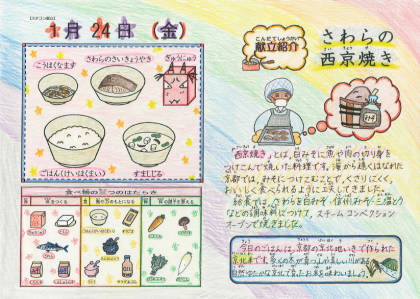 1月24日（金）
こうはくなます
さわらのさいきょうやき
ぎゅうにゅう
ごはん（けいほくまい）
すましじる
食べ物の三つのはたらき
こんだてしょうかい
献立紹介
さわらの
西京焼き
みそ
西京焼き とは、白みそに魚や肉の切り身を
つけこんで焼いた料理です。海から遠くはなれた
京都では、みそにつけこむことで、くさりにくく、
おいしく食べられるように工夫してきました。
給食では、さわらを白みそ・信州みそ・三温とう
などの調味料につけて、スチーム コンベクション
オーブンで焼きました。
今日のごはんは、京都の京北地いきで作られた
京北米です。